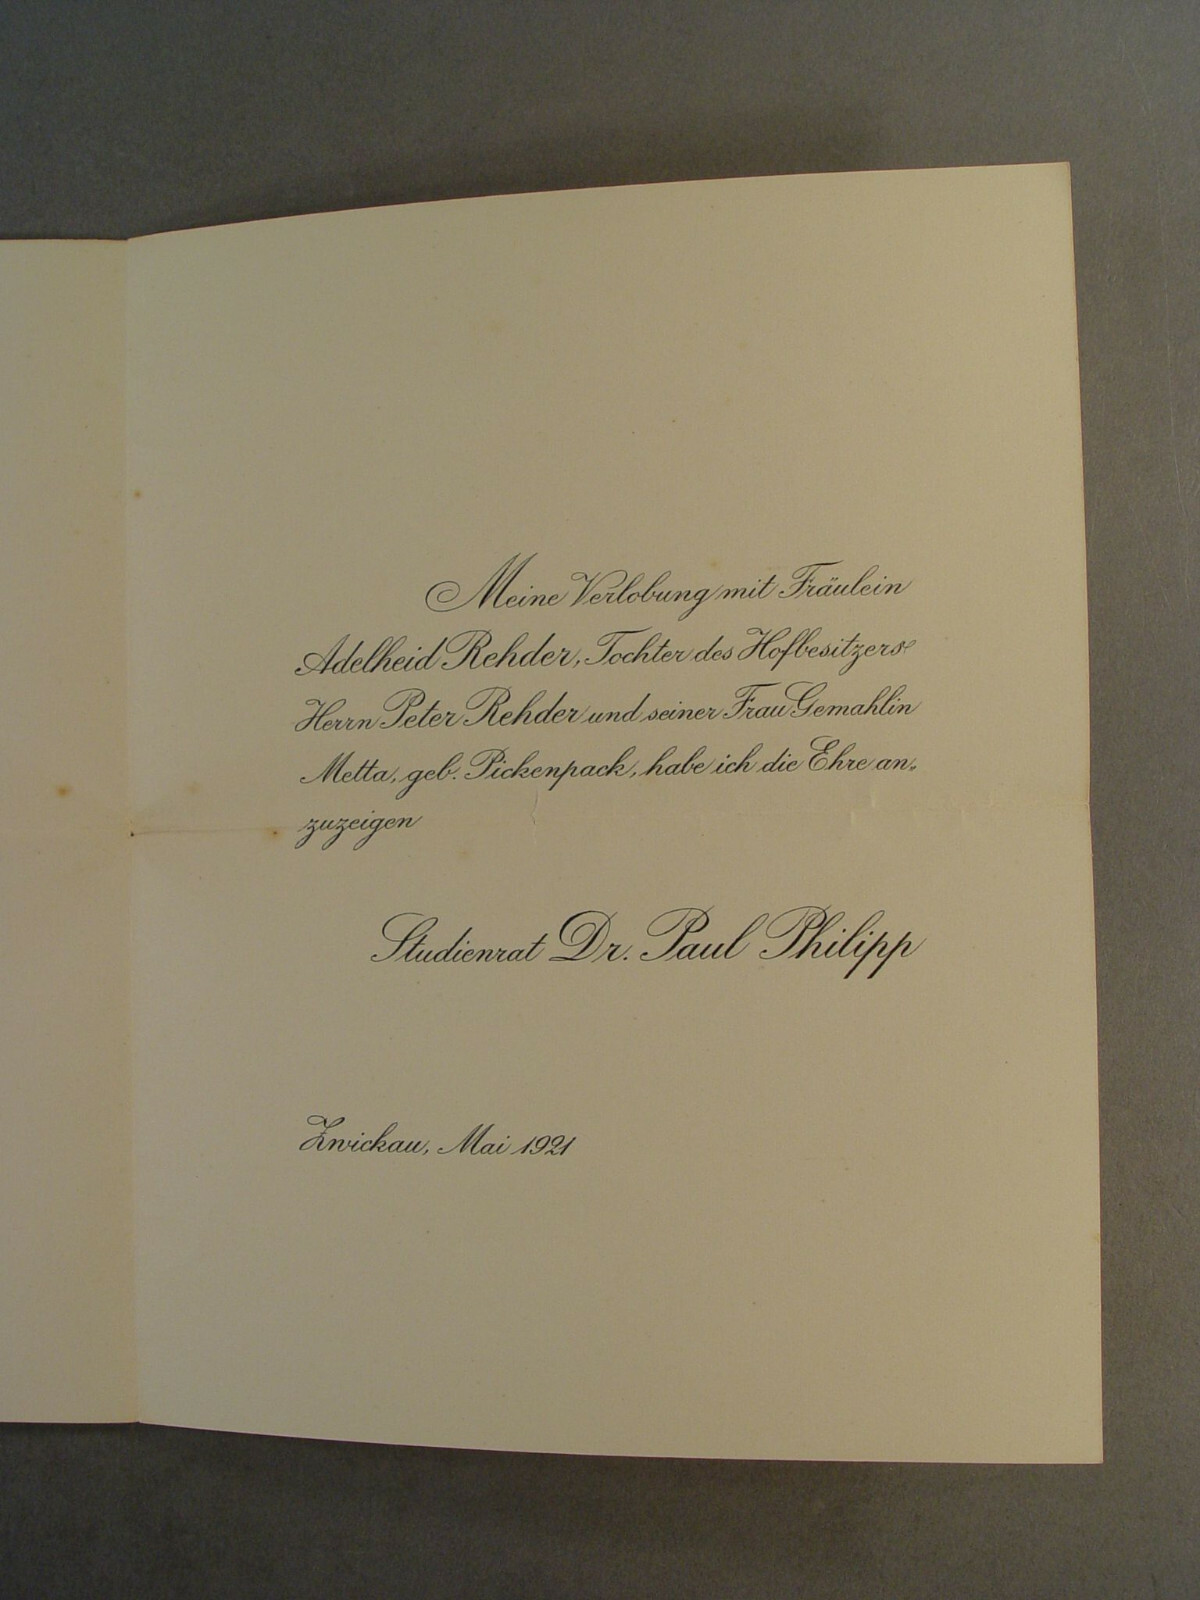 Meine Verlobung mit Fräulein
Adelheid Rehder, Tochter des Hofbesitzers
Herrn Peter Rehder und seiner Frau Gemahlin
Metta, geb. Pickenpack, habe ich die Ehre an-
zuzeigen
Studienrat Dr. Paul Philipp
Zwickau, Mai 1921